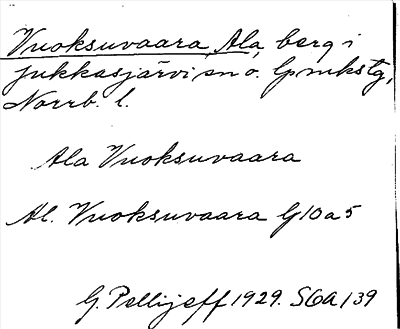 Vuoksuvaara, Ala, berg i
Jukkasjärvi sn o. lpmkstg,
Norrb. l.
Ala Vuoksuvaara
Al. Vuoksuvaara G10a5
G. Pellijeff 1929. S6a 139